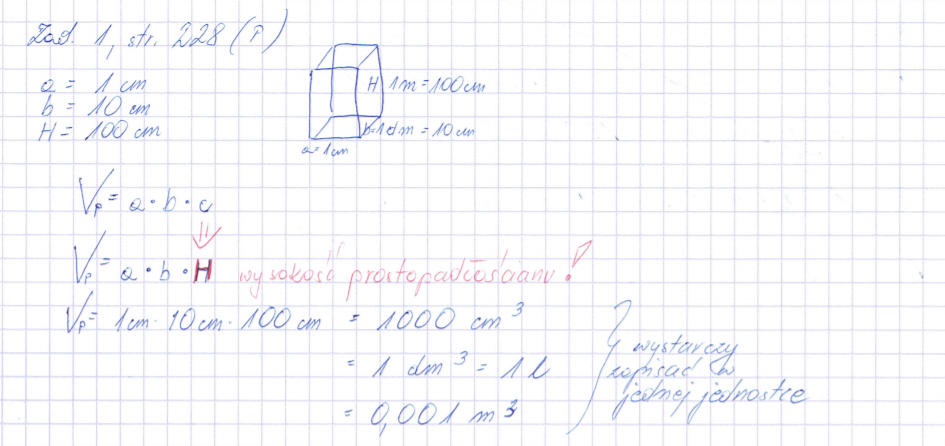 Zad. 1, str. 228 (P)
a = 1 cm
b = 10 cm
H = 100 cm
H 1m = 100 cm
b=1dm = 10 cm
a=1cm
Vp = a · b · c
Vp = a · b · H wysokość prostopadłościanu!
Vp = 1cm · 10cm · 100 cm = 1000 cm³
= 1 dm³ = 1 l
= 0,001 m³
wystarczy
zapisać w
jednej jednostce